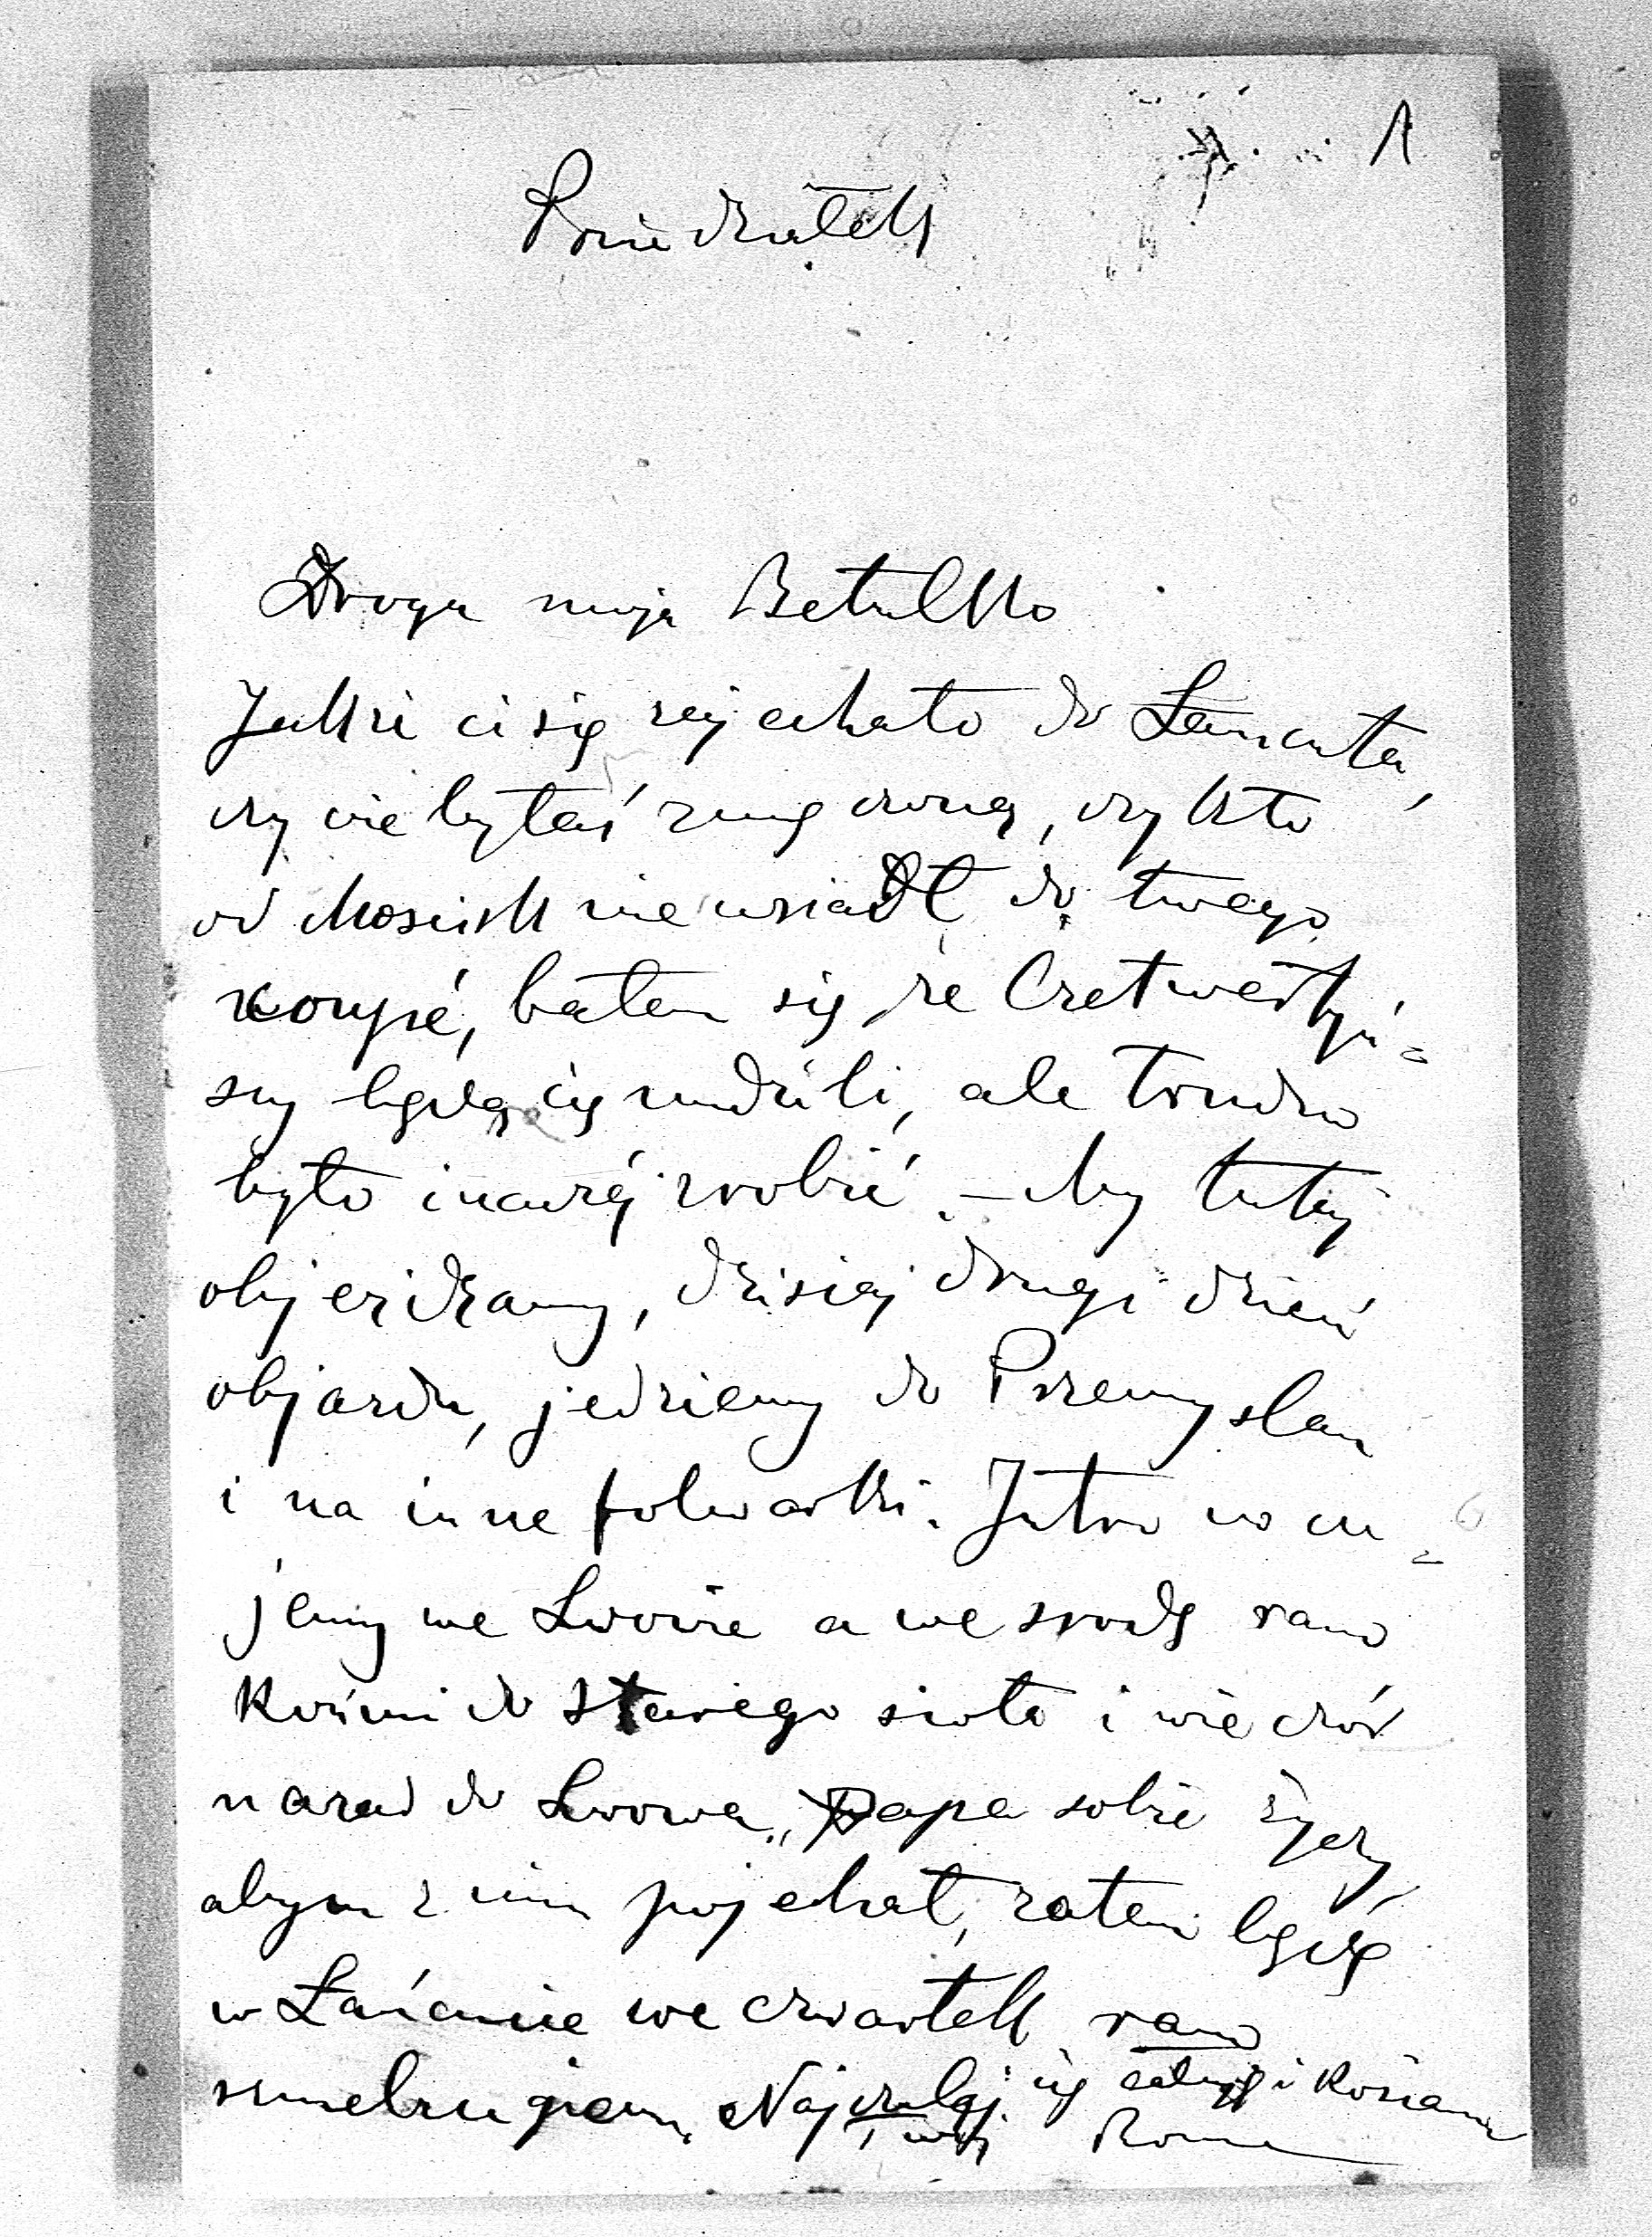 1
Poniedziałek
Droga moja Betulko
Jakże ci się zajechało do Łańcuta,
czy nie byłaś zmęczoną, czy kto
od Mościsk nie wsiadł do twego
coupé, bałem się że Czetwertyń=
scy będą cię nudzili, ale trudno
było inaczéj zrobić. – My tutaj
objeżdżamy, dzisiaj drugi dzień
objazdu, jedziemy do Przemyślan
i na inne folwarki. Jutro nocu=
jemy we Lwowie a we środę rano
końmi do Starego sioła i wieczór
nazad do Lwowa, Papa sobie życzy
abym z nim pojechał, zatem będę
w Łańcucie we czwartek rano
sznelcugiem. Najczulej cię całuję i ściskam
Twój Roman